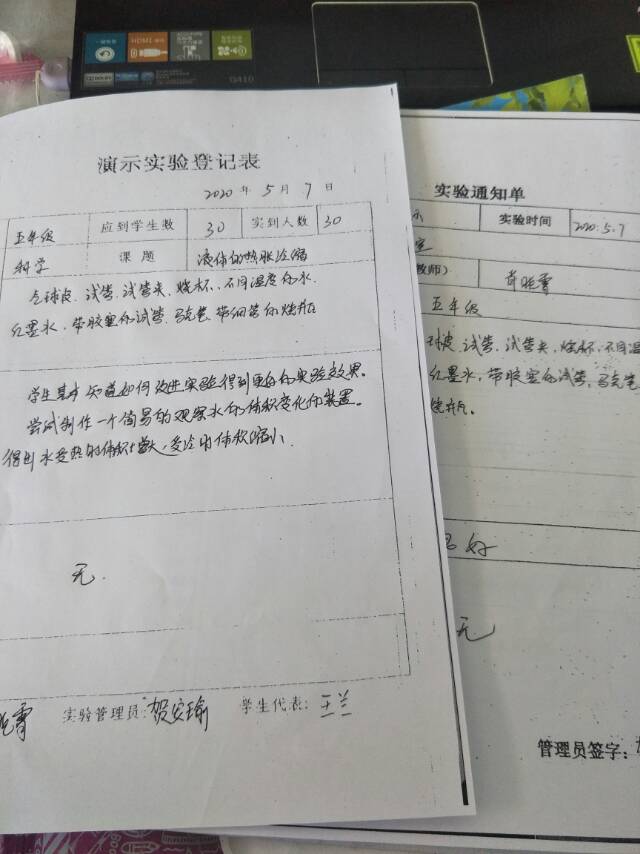 G410
演示实验登记表
2020 年 5 月 7 日
五年级 应到学生数 30 实到人数 30
科学 课题 液体的热胀冷缩
气球皮、试管、试管夹、烧杯、不同温度的水
红墨水、带胶塞的试管、马克笔、带细管的烧瓶
学生基本知道如何改进实验得到更好的实验效果。
尝试制作一个简易的观察水的体积变化的装置。
得出水受热时体积增大,受冷时体积缩小。
无.
实验管理员: 贺安瑜 学生代表: 王兰
实验通知单
实验时间 2020.5.7
教师)
五年级
球皮、试管、试管夹、烧杯、不同温
红墨水、带胶塞的试管、马克笔
烧瓶。
好
无
管理员签字: